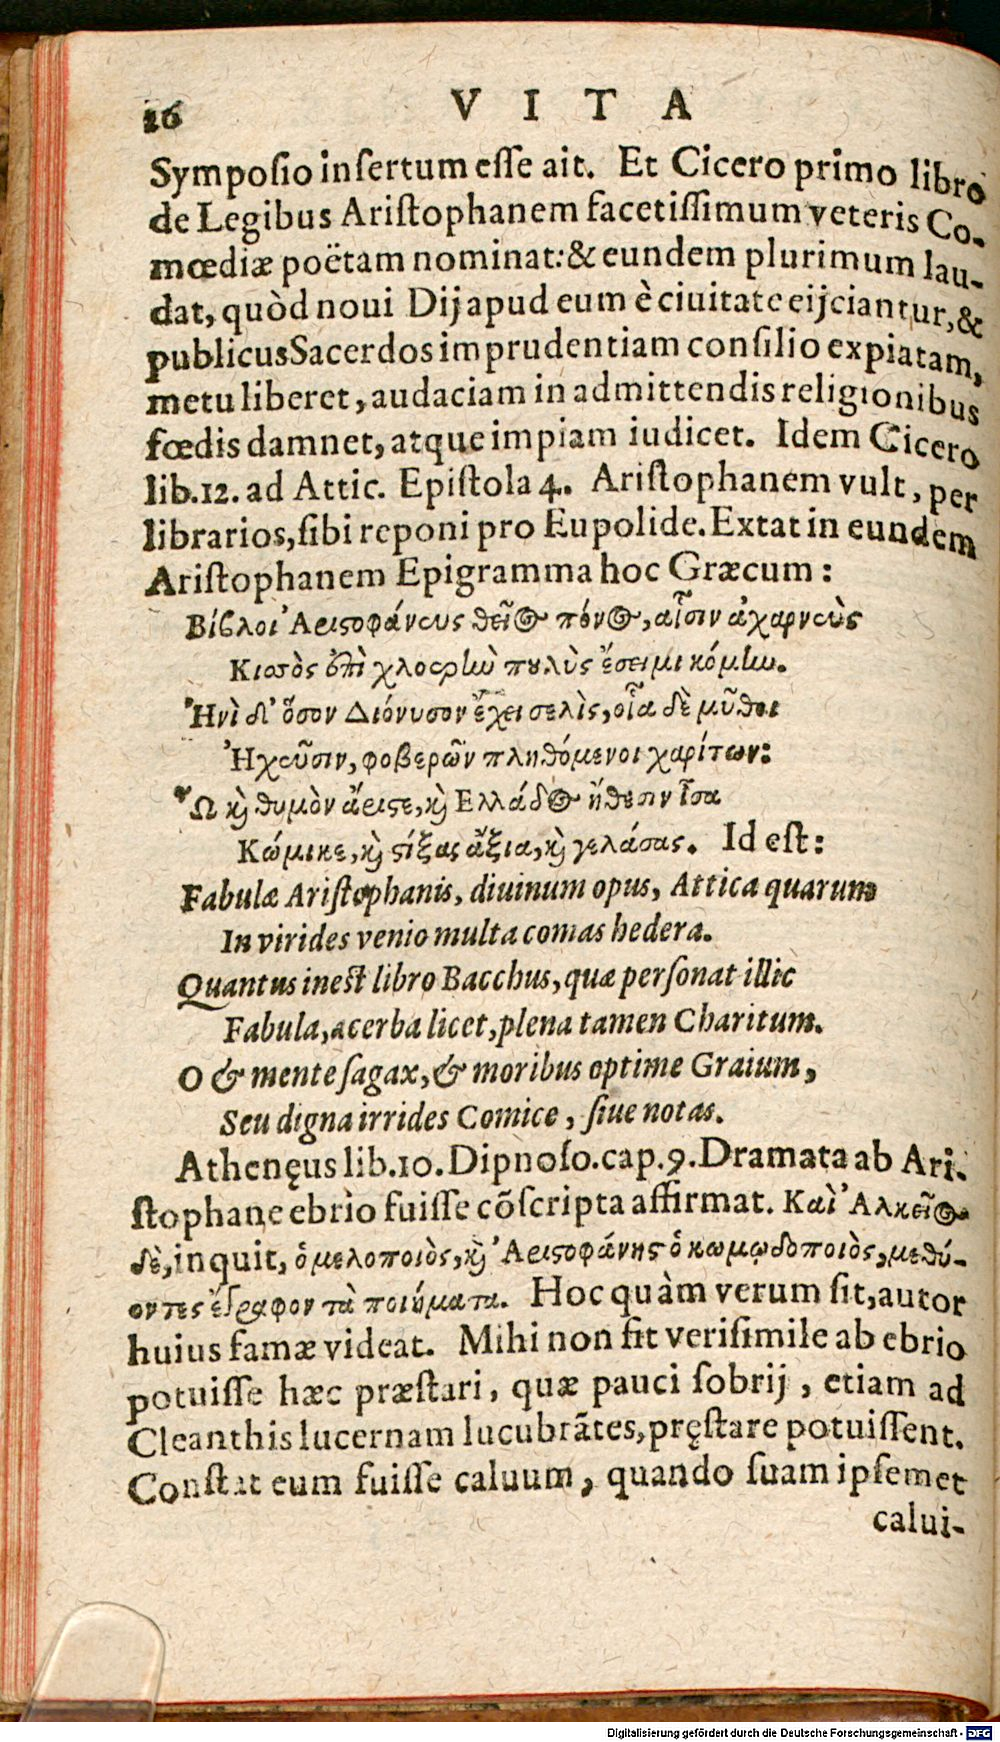 16 VITA
Symposio insertum esse ait. Et Cicero primo libro
de Legibus Aristophanem facetissimum veteris Co-
mœdiæ poëtam nominat: & eundem plurimum lau-
dat, quòd noui Dij apud eum è ciuitate eijciantur, &
publicus Sacerdos imprudentiam consilio expiatam,
metu liberet, audaciam in admittendis religionibus
fœdis damnet, atque impiam iudicet. Idem Cicero
lib.12. ad Attic. Epistola 4. Aristophanem vult, per
librarios, sibi reponi pro Eupolide. Extat in eundem
Aristophanem Epigramma hoc Græcum:
Βίβλοι Ἀριστοφάνευς θεῖος πόνος, αἷσιν ἀχαρνεὺς
Κισσὸς ἐπὶ χλοερὴν πουλὺς ἔσεισε κόμην.
Ἠνὶ δ' ὅσον Διόνυσον ἔχει σελὶς, οἷα δὲ μῦθοι
Ἠχεῦσιν, φοβερῶν πληθόμενοι χαρίτων:
Ὦ καὶ θυμὸν ἄριστε, καὶ Ἑλλάδος ἤθεσιν ἶσα
Κώμικε, καὶ στίξας ἄξια, καὶ γελάσας. Id est:
Fabulæ Aristophanis, diuinum opus, Attica quarum
In virides venio multa comas hedera.
Quantus inest libro Bacchus, quæ personat illic
Fabula, acerba licet, plena tamen Charitum.
O & mente sagax, & moribus optime Graium,
Seu digna irrides Comice, siue notas.
Athenęus lib.10. Dipnoso. cap.9. Dramata ab Ari-
stophane ebrio fuisse cõscripta affirmat. Καὶ Ἀλκεῖος
δὲ, inquit, ὁ μελοποιὸς, καὶ Ἀριστοφάνης ὁ κωμῳδοποιὸς, μεθύ-
οντες ἔγραφον τὰ ποιήματα. Hoc quàm verum sit, autor
huius famæ videat. Mihi non fit verisimile ab ebrio
potuisse hæc præstari, quæ pauci sobrij, etiam ad
Cleanthis lucernam lucubrãtes, pręstare potuissent.
Constat eum fuisse caluum, quando suam ipsemet
calui-
Digitalisierung gefördert durch die Deutsche Forschungsgemeinschaft - DFG